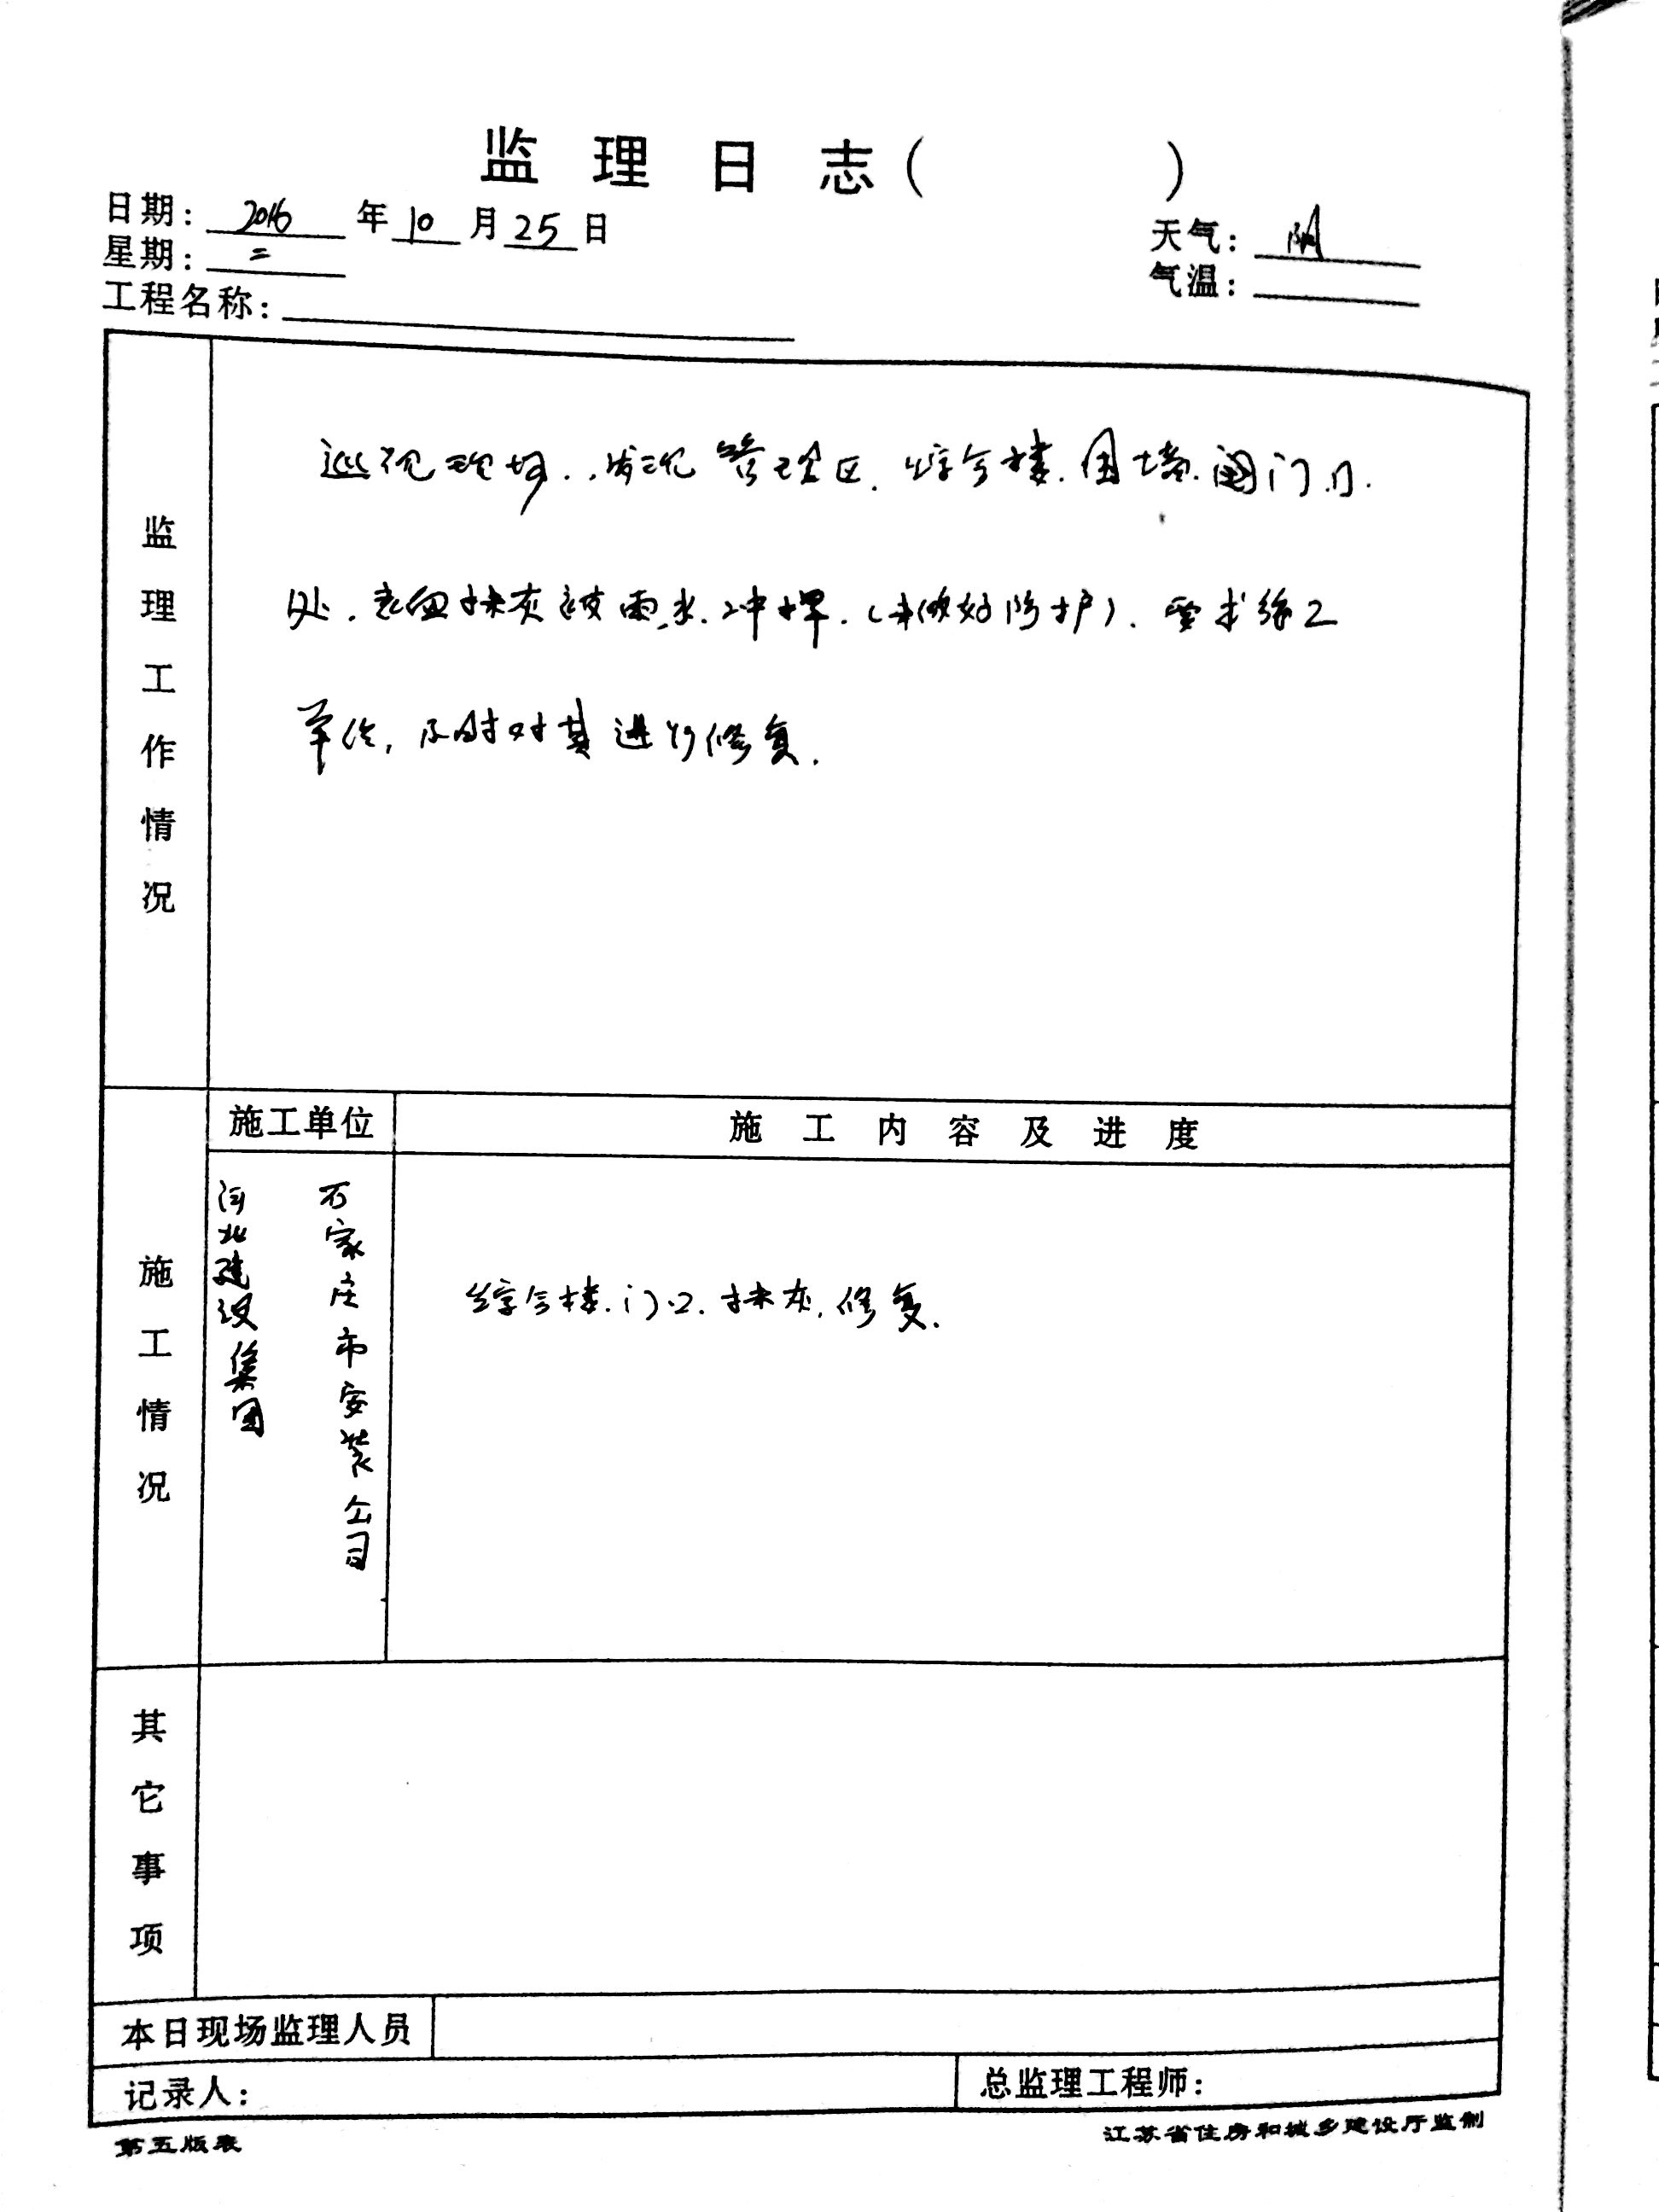 监理日志（ ）
日期：2016年10月25日
天气：阴
星期：二
气温：
工程名称：
监理工作情况
巡视现场，发现管理区、综合楼、围墙、阀门口
处，表面抹灰被雨水冲掉，（未做好防护），要求施工
单位，及时对其进行修复。
施工情况
施工单位
施工内容及进度
石家庄市安装公司
河北建设集团
综合楼门口抹灰修复。
其它事项
本日现场监理人员
记录人：
总监理工程师：
第五版表
江苏省住房和城乡建设厅监制